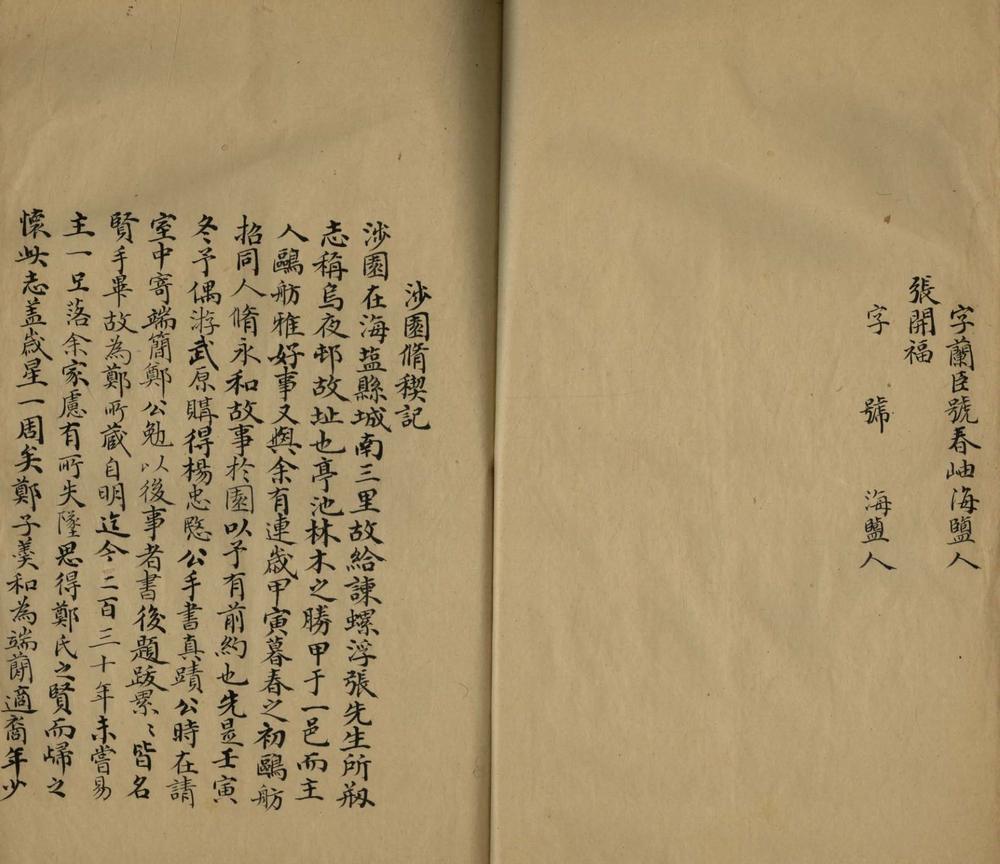 字蘭臣號春岫海鹽人
張開福
字　號　海盬人
涉園脩稧記
涉園在海塩縣城南三里故給諫螺浮張先生所剏
志稱烏夜邨故址也亭池林木之勝甲于一邑而主
人鷗舫雅好事又與余有連歲甲寅暮春之初鷗舫
招同人脩永和故事於園以予有前約也先是壬寅
冬予偶游武原購得楊忠愍公手書真蹟公時在請
室中寄端簡鄭公勉以後事者書後題跋累〻皆名
賢手畢故為鄭所藏自明迄今二百三十年未嘗易
主一旦落余家慮有所失墜思得鄭氏之賢而歸之
懷此志盖歲星一周矣鄭子羹和為端蕳適裔年少